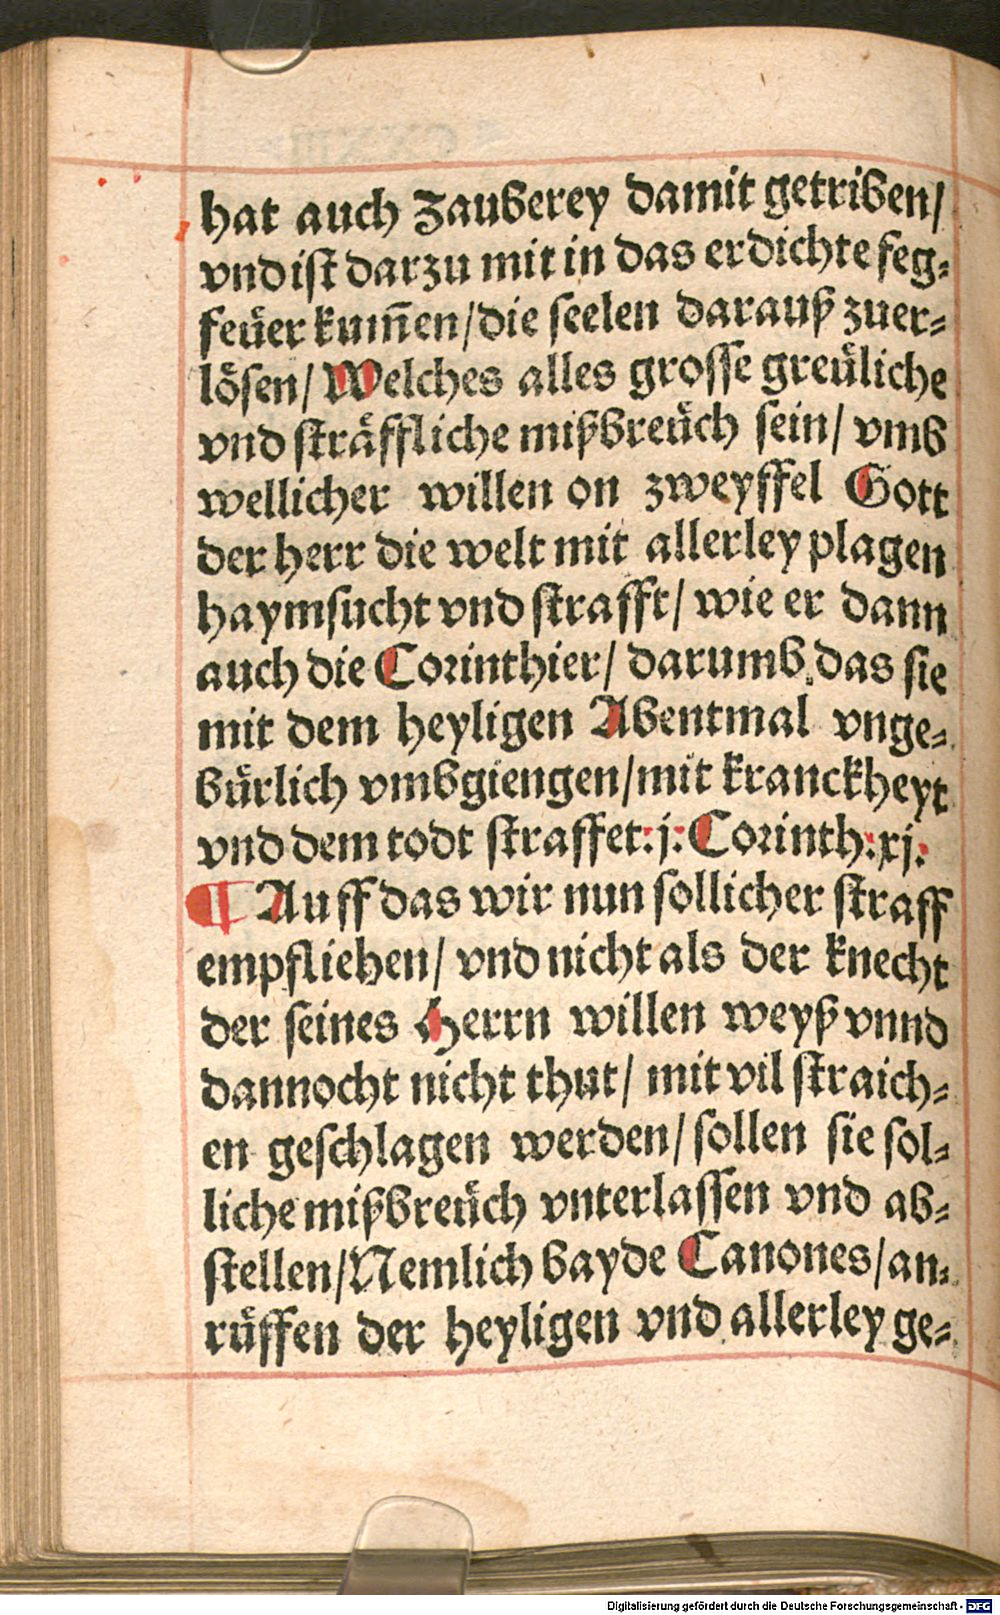 hat auch Zauberey damit getriben/
vnd ist darzu mit in das erdichte feg⸗
feüer kum̃en/die seelen darauß zuer⸗
lösen/ Welches alles grosse greüliche
vnd sträffliche mißbreüch sein/ vmb
wellicher willen on zweyffel Gott
der herr die welt mit allerley plagen
haymsucht vnd strafft/ wie er dann
auch die Corinthier/ darumb das sie
mit dem heyligen Abentmal vnge⸗
bürlich vmbgiengen/mit kranckheyt
vnd dem todt straffet: j: Corinth: xj:
¶ Auff das wir nun sollicher straff
empfliehen/ vnd nicht als der knecht
der seines Herrn willen weyß vnnd
dannocht nicht thut/ mit vil straich⸗
en geschlagen werden/ sollen sie sol⸗
liche mißbreüch vnterlassen vnd ab⸗
stellen/Nemlich bayde Canones/an⸗
rüffen der heyligen vnd allerley ge⸗
Digitalisierung gefördert durch die Deutsche Forschungsgemeinschaft - DFG